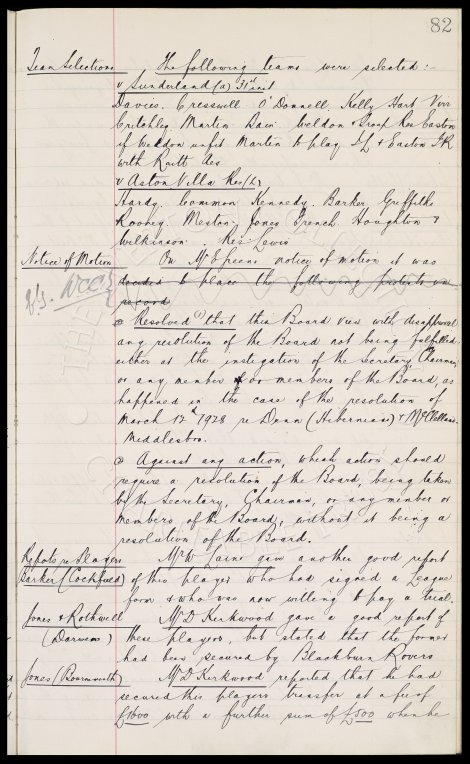 82
Team Selections The following teams were selected :-
v Sunderland (a) 31st inst
Davies. Cresswell O'Donnell. Kelly Hart Virr
Critchley Martin Weldon & Troup Res Easton
if Weldon unfit Martin to play I L & Easton I R
with Raitt Res
v Aston Villa Res (h)
Hardy. Common Kennedy. Barker Griffiths
Rooney Meston. Jones French Houghton &
Wilkinson. Res Lewis
Notice of Motion On Mr E Green's notice of motion it was
decided to place the following protests on
record
(1) Resolved that this Board view with disapproval
any resolution of the Board not being fulfilled
either at the instigation of the Secretary, Chairman
or any member or members of the Board, as
happened in the case of the resolution of
March 12th 1928 re Dunn (Hibernians) & McClelland
Middlesbro.
(2) Against any action, which action should
require a resolution of the Board, being taken
by the Secretary, Chairman, or any member or
members of the Board, without it being a
resolution of the Board.
Reports re Players Mr W Sawyer gave another good report
Barker (Cockfield) of this player who had signed a League
form & who was now willing to pay a trial.
Jones & Rothwell Mr D Kirkwood gave a good report of
(Darwen) these players, but stated that the former
had been secured by Blackburn Rovers
Jones (Bournemouth) Mr D Kirkwood reported that he had
secured this players transfer at a fee of
£1000 with a further sum of £500 when he